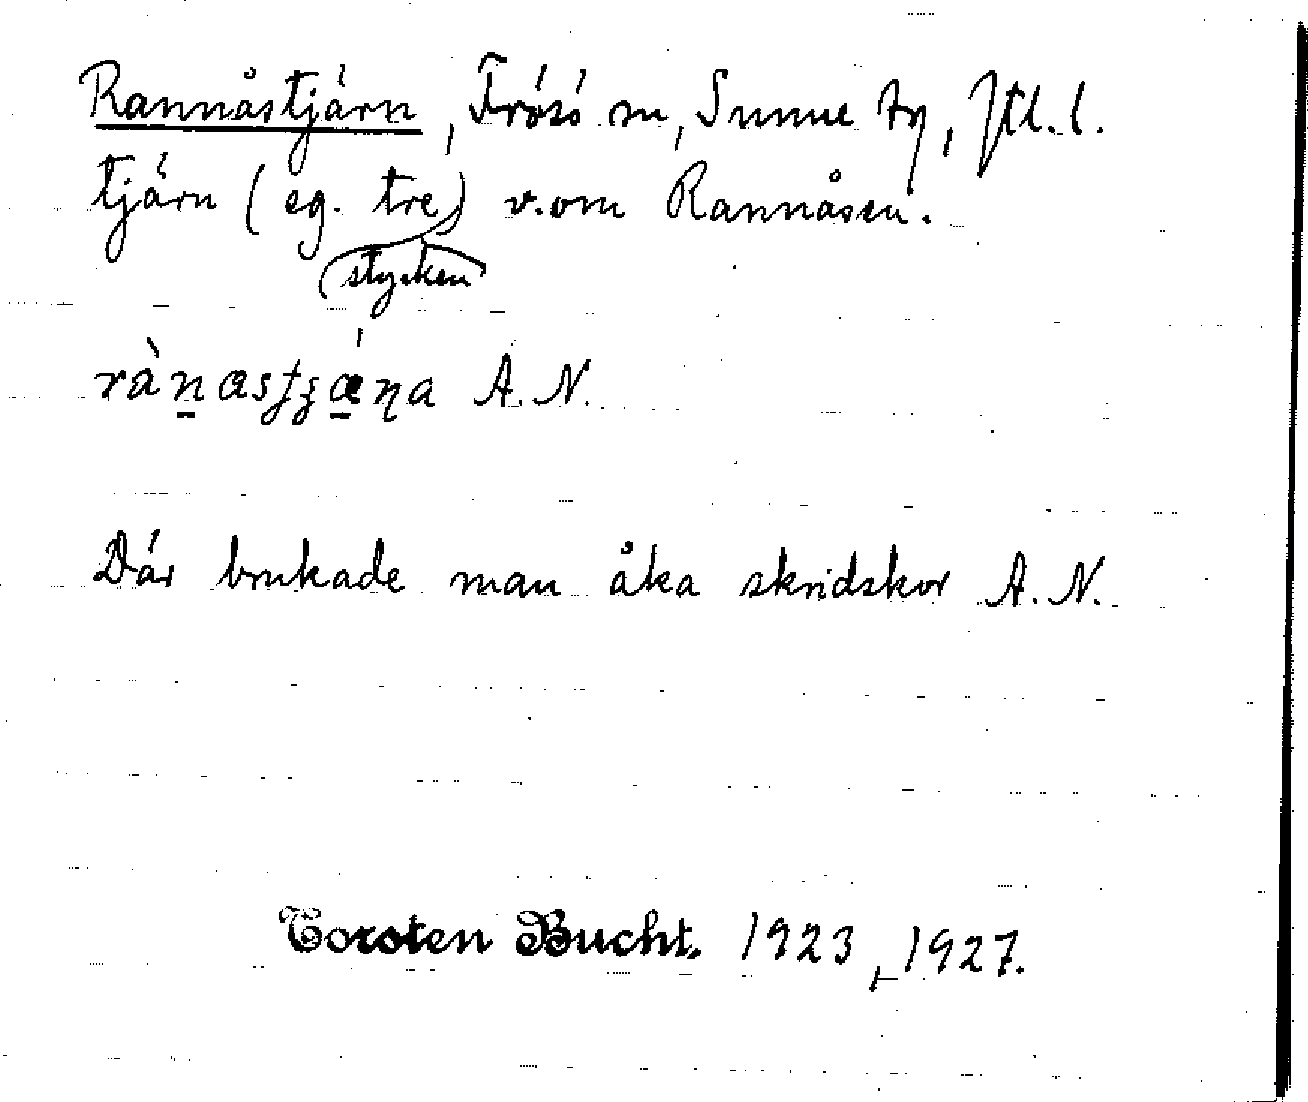 Rannåstjärn, Frösö sn, Sunne ty, Jtl. l.
tjärn (eg. tre stycken) v. om Rannåsen.
rànastʒǽŋa A. N.
Där brukade man åka skridskor A. N.
Torsten Bucht. 1923, 1927.